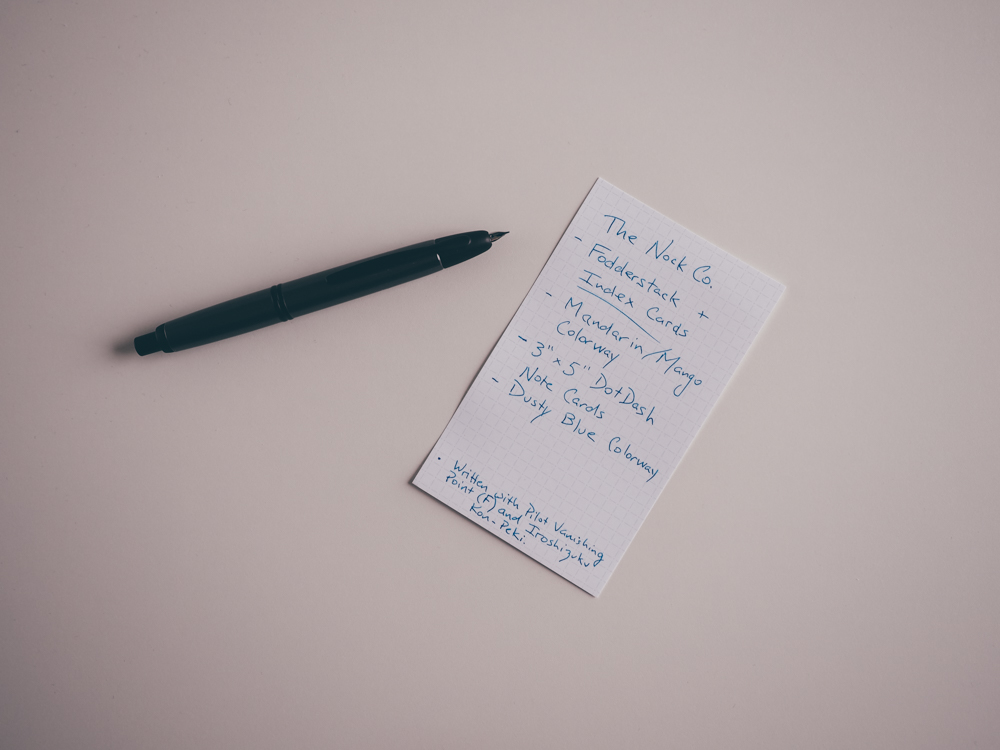 The Nock Co.
- Fodderstack +
Index Cards
- Mandarin/Mango
Colorway
- 3" x 5" DotDash
Note Cards
- Dusty Blue Colorway
· Written with Pilot Vanishing
Point (F) and Iroshizuku
Kon-Peki.